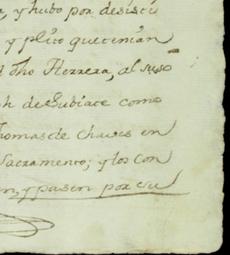 y hubo por desisti
y plito que tenian
dho Herrera, al suso
h de Subiate como
Thomas de Chaves en
Sacramento; y los con
en, y pasen por su